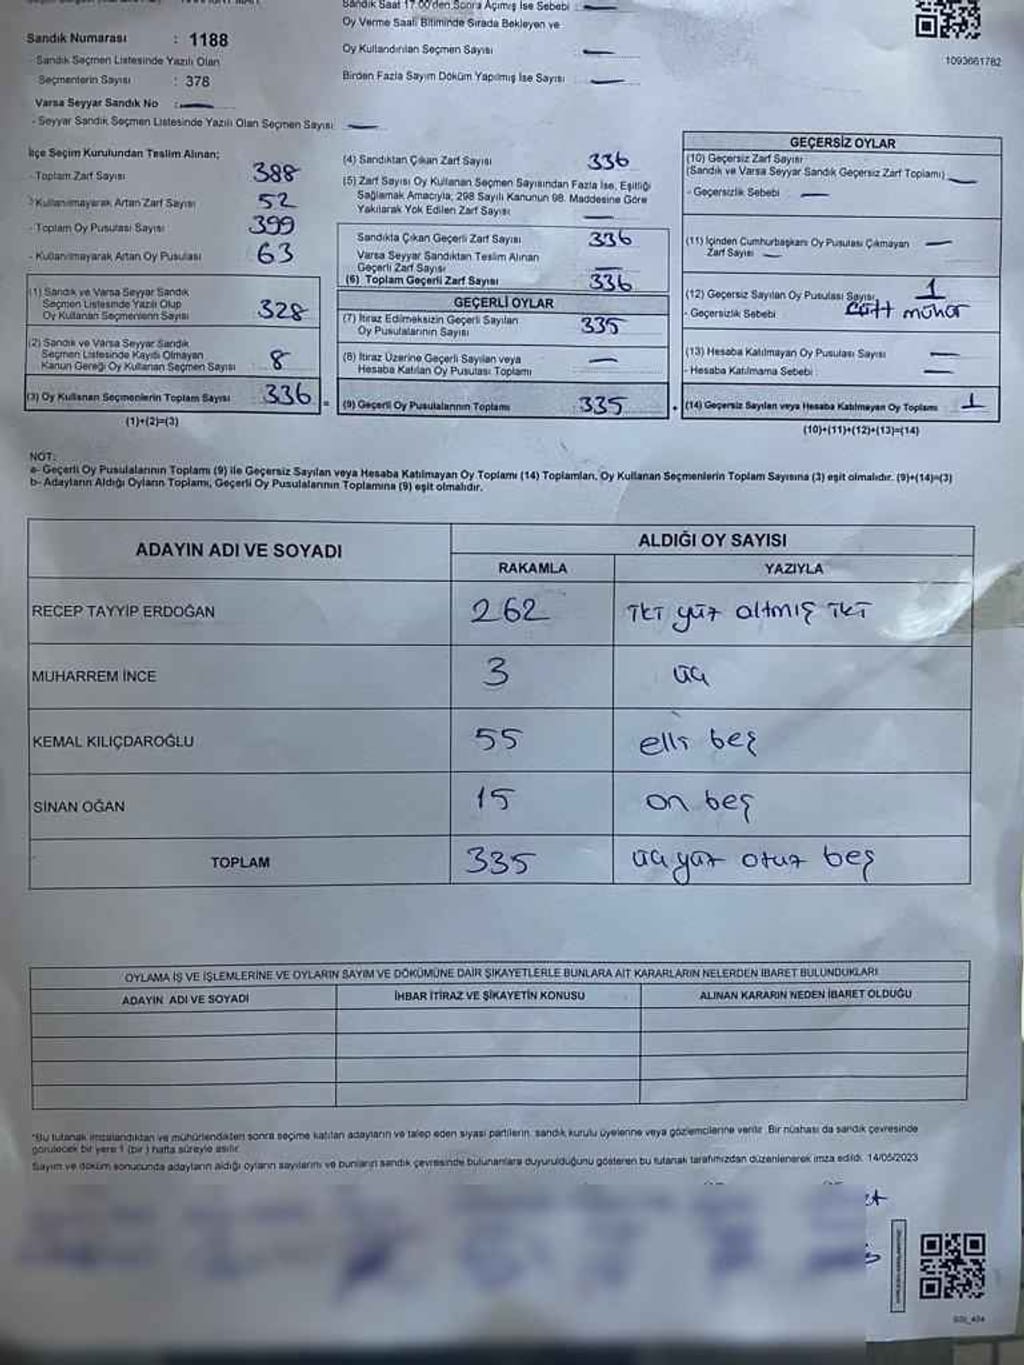 Sandık Saat 17:00'den Sonra Açılmış İse Sebebi :
Oy Verme Saati Bitiminde Sırada Bekleyen ve
Oy Kullandırılan Seçmen Sayısı
Birden Fazla Sayım Döküm Yapılmış İse Sayısı
1093661782
Sandık Numarası : 1188
- Sandık Seçmen Listesinde Yazılı Olan
Seçmenlerin Sayısı : 378
Varsa Seyyar Sandık No :
- Seyyar Sandık Seçmen Listesinde Yazılı Olan Seçmen Sayısı
İlçe Seçim Kurulundan Teslim Alınan;
- Toplam Zarf Sayısı 388
- Kullanılmayarak Artan Zarf Sayısı 52
- Toplam Oy Pusulası Sayısı 399
- Kullanılmayarak Artan Oy Pusulası 63
(1) Sandık ve Varsa Seyyar Sandık
Seçmen Listesinde Yazılı Olup
Oy Kullanan Seçmenlerin Sayısı 328
(2) Sandık ve Varsa Seyyar Sandık
Seçmen Listesinde Kayıtlı Olmayan
Kanun Gereği Oy Kullanan Seçmen Sayısı 8
(3) Oy Kullanan Seçmenlerin Toplam Sayısı 336 =
(1)+(2)=(3)
(4) Sandıktan Çıkan Zarf Sayısı 336
(5) Zarf Sayısı Oy Kullanan Seçmen Sayısından Fazla İse, Eşitliği
Sağlamak Amacıyla, 298 Sayılı Kanunun 98. Maddesine Göre
Yakılarak Yok Edilen Zarf Sayısı
Sandıkta Çıkan Geçerli Zarf Sayısı 336
Varsa Seyyar Sandıktan Teslim Alınan
Geçerli Zarf Sayısı
(6) Toplam Geçerli Zarf Sayısı 336
GEÇERLİ OYLAR
(7) İtiraz Edilmeksizin Geçerli Sayılan
Oy Pusulalarının Sayısı 335
(8) İtiraz Üzerine Geçerli Sayılan veya
Hesaba Katılan Oy Pusulası Toplamı
(9) Geçerli Oy Pusulalarının Toplamı 335 +
GEÇERSİZ OYLAR
(10) Geçersiz Zarf Sayısı
(Sandık ve Varsa Seyyar Sandık Geçersiz Zarf Toplamı)
- Geçersizlik Sebebi
(11) İçinden Cumhurbaşkanı Oy Pusulası Çıkmayan
Zarf Sayısı
(12) Geçersiz Sayılan Oy Pusulası Sayısı 1
- Geçersizlik Sebebi Çift mühür
(13) Hesaba Katılmayan Oy Pusulası Sayısı
- Hesaba Katılmama Sebebi
(14) Geçersiz Sayılan veya Hesaba Katılmayan Oy Toplamı 1
(10)+(11)+(12)+(13)=(14)
NOT:
a- Geçerli Oy Pusulalarının Toplamı (9) ile Geçersiz Sayılan veya Hesaba Katılmayan Oy Toplamı (14) Toplamları, Oy Kullanan Seçmenlerin Toplam Sayısına (3) eşit olmalıdır. (9)+(14)=(3)
b- Adayların Aldığı Oyların Toplamı, Geçerli Oy Pusulalarının Toplamına (9) eşit olmalıdır.
ADAYIN ADI VE SOYADI ALDIĞI OY SAYISI
RAKAMLA YAZIYLA
RECEP TAYYİP ERDOĞAN 262 iki yüz altmış iki
MUHARREM İNCE 3 üç
KEMAL KILIÇDAROĞLU 55 elli beş
SİNAN OĞAN 15 on beş
TOPLAM 335 üç yüz otuz beş
OYLAMA İŞ VE İŞLEMLERİNE VE OYLARIN SAYIM VE DÖKÜMÜNE DAİR ŞİKAYETLERLE BUNLARA AİT KARARLARIN NELERDEN İBARET BULUNDUKLARI
ADAYIN ADI VE SOYADI İHBAR İTİRAZ VE ŞİKAYETİN KONUSU ALINAN KARARIN NEDEN İBARET OLDUĞU
*Bu tutanak imzalandıktan ve mühürlendikten sonra seçime katılan adayların ve talep eden siyasi partilerin, sandık kurulu üyelerine veya gözlemcilerine verilir. Bir nüshası da sandık çevresinde
görülecek bir yere 1 (bir) hafta süreyle asılır.
Sayım ve döküm sonucunda adayların aldığı oyların sayılarını ve bunların sandık çevresinde bulunanlara duyurulduğunu gösteren bu tutanak tarafımızdan düzenlenerek imza edildi. 14/05/2023